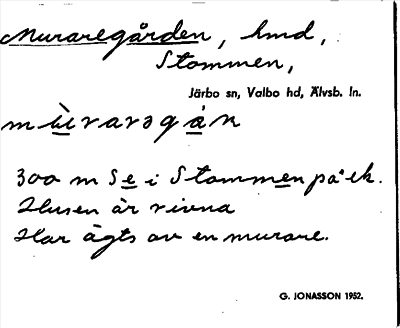 Muraregården, hmd,
Stommen,
Järbo sn, Valbo hd, Älvsb. ln.
mùrarəgán
300 m Se i Stommen på ek.
Husen är rivna
Har ägts av en murare.
G. JONASSON 1952.